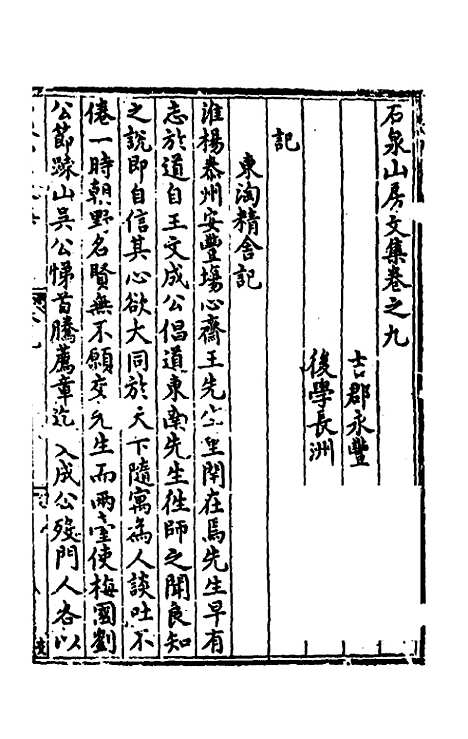 石泉山房文集卷之九
吉郡永豐
後學長洲
記
東淘精舍記
淮楊泰州安豐塲心齋王先生里閈在焉先生早有
志於道自王文成公倡道東南先生徃師之聞良知
之說即自信其心欲大同於天下隨寓為人談吐不
倦一時朝野名賢無不願交先生而兩臺使梅國劉
公節踈山吳公悌首騰薦章迨文成公歿門人各以